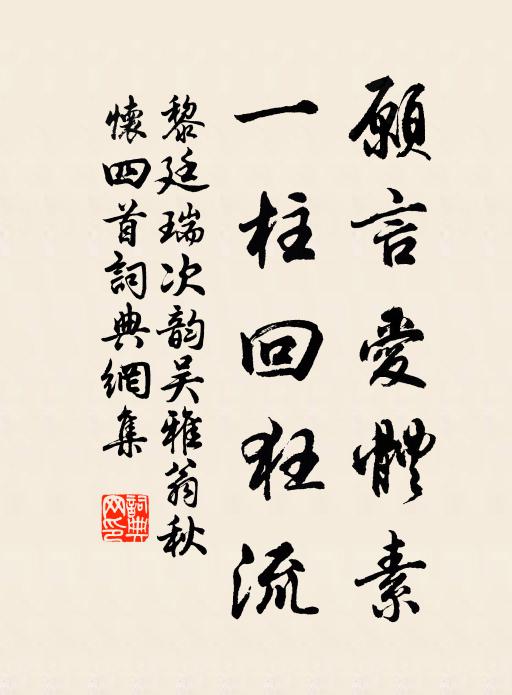 願言愛體素
一柱回狂流
黎廷瑞次韵吴雅翁秋
懷四首詞典網集
詞典
网印